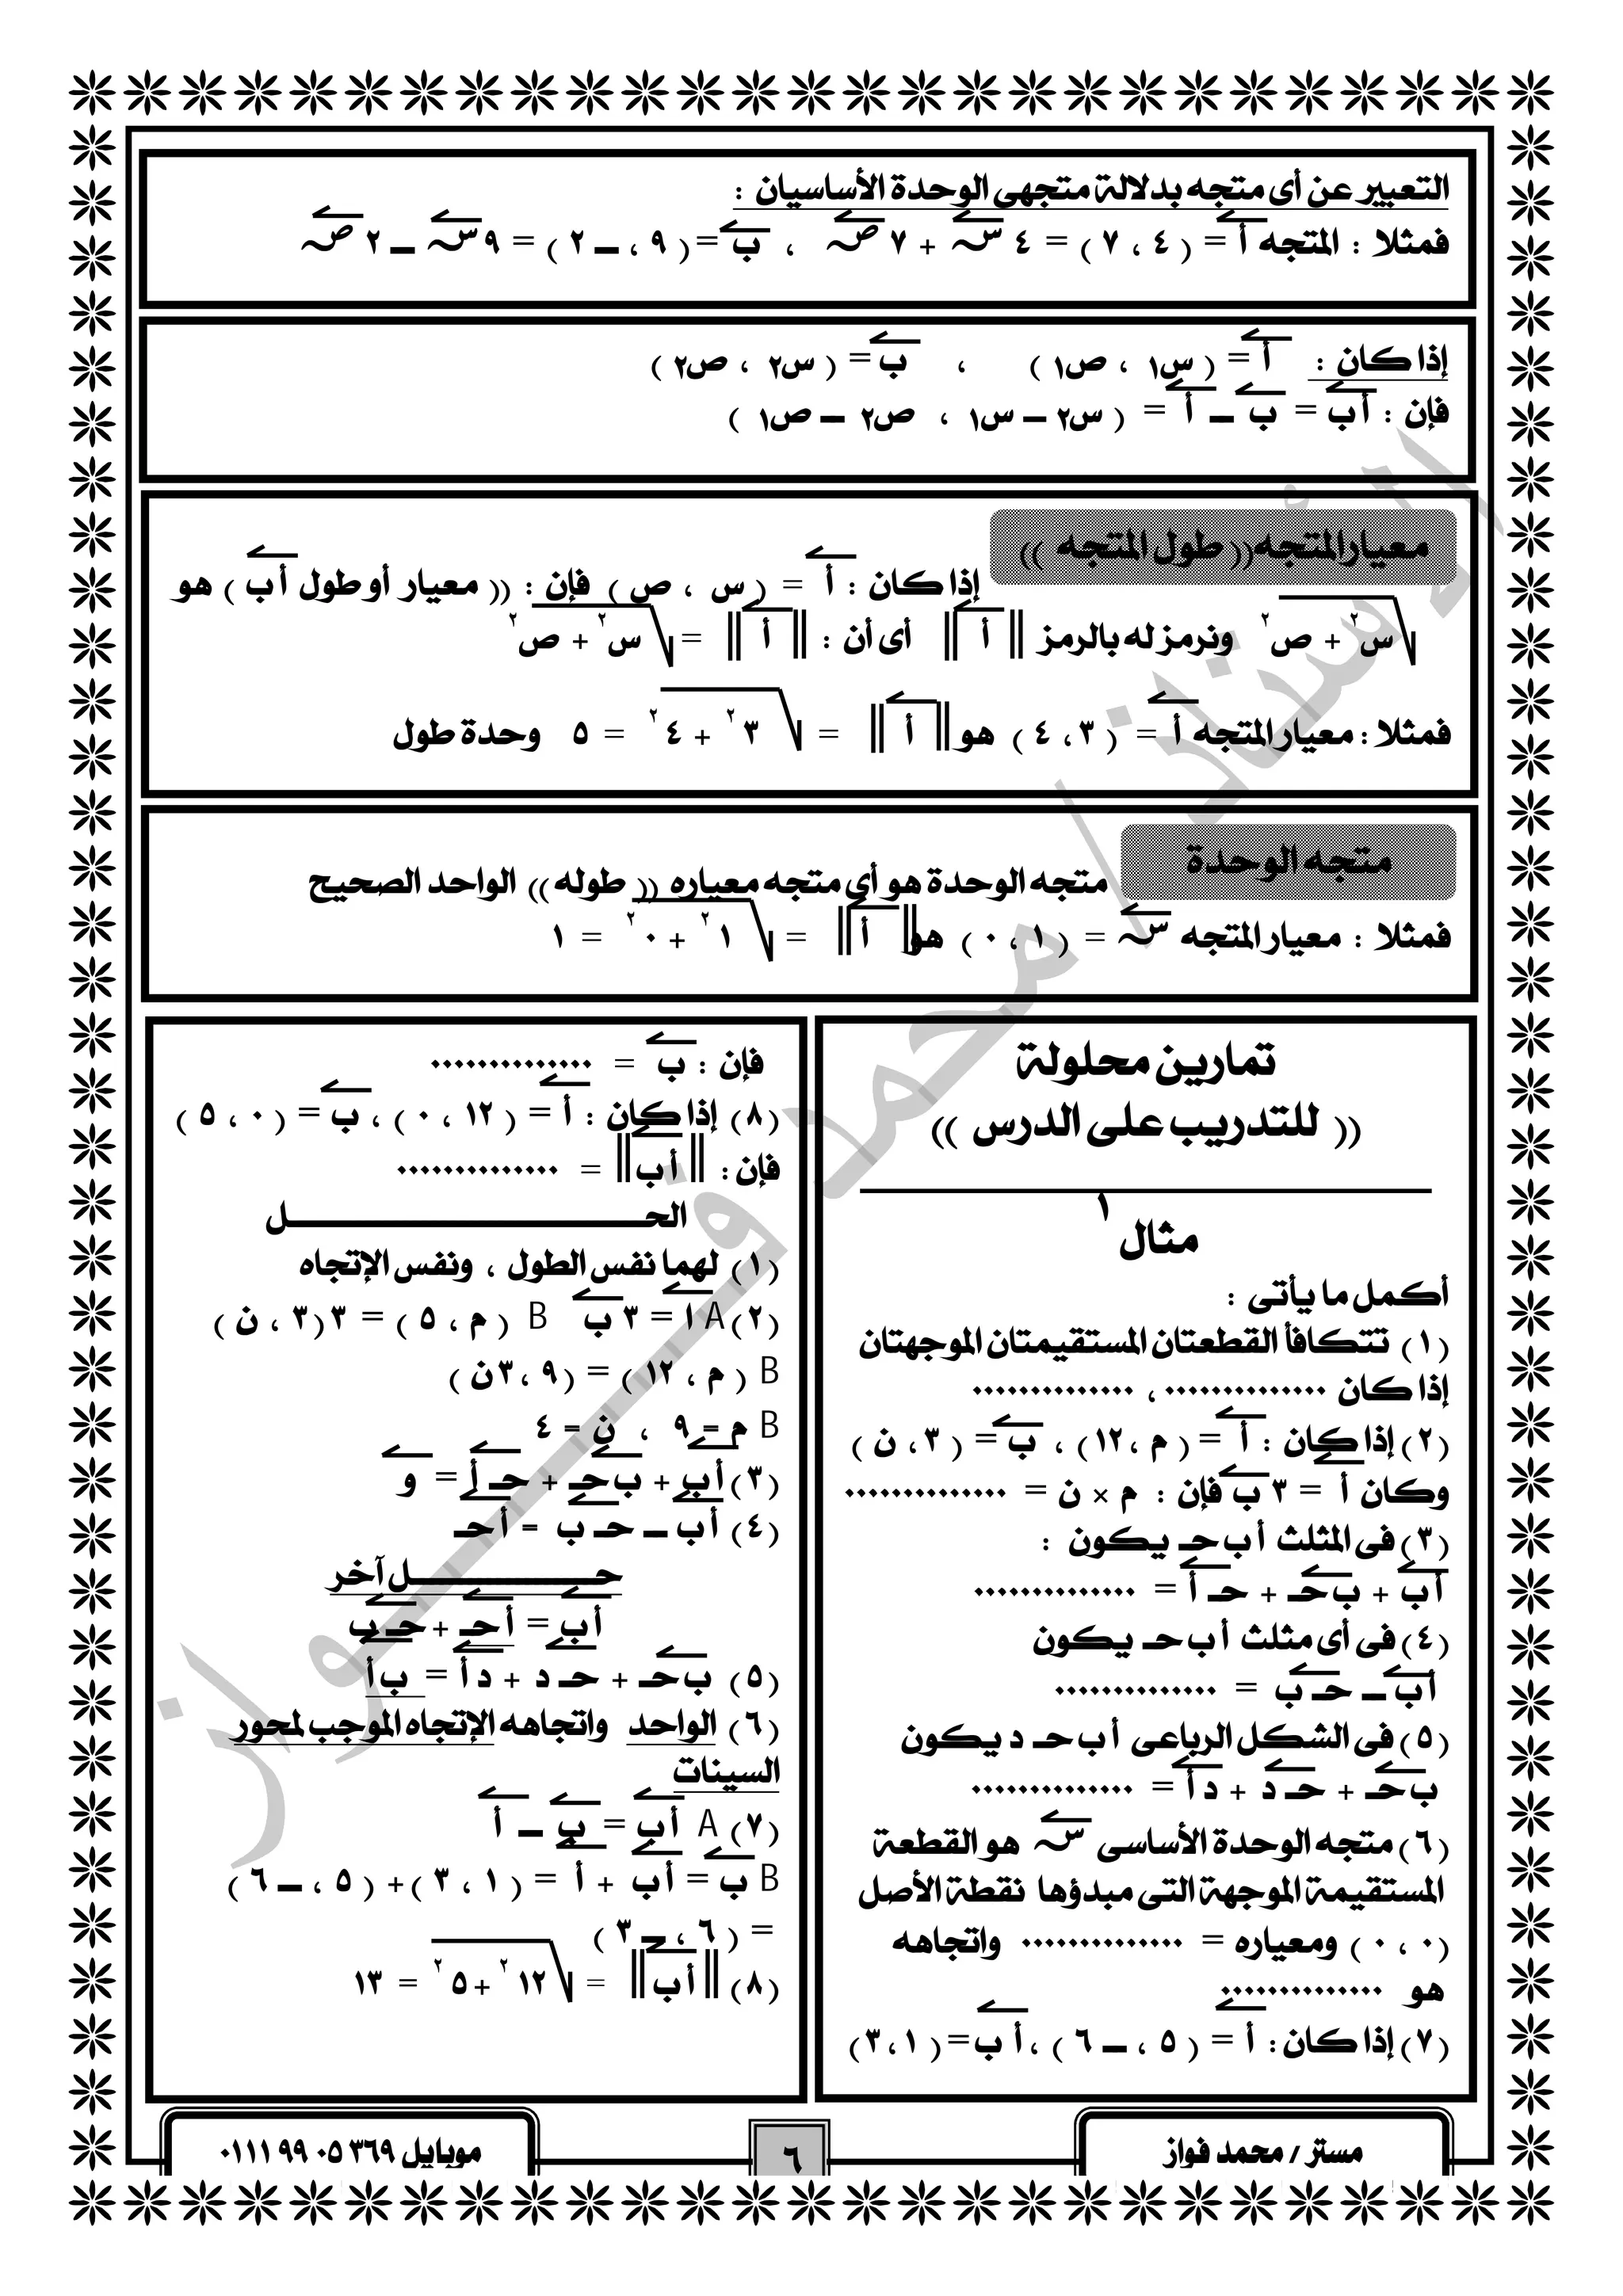 التعبير عن أى متجه بدلالة متجهى الوحدة الأساسيان :
فمثلا : المتجه أ = ( ٤ ، ٧ ) = ٤ س + ٧ ص ، ب = ( ٩ ، ــ ٢ ) = ٩ س ــ ٢ ص
إذا كان : أ = ( س١ ، ص١ ) ، ب = ( س٢ ، ص٢ )
فإن : أ ب = ب ــ أ = ( س٢ ــ س١ ، ص٢ ــ ص١ )
معيار المتجه (( طول المتجه ))
إذا كان : أ = ( س ، ص ) فإن : (( معيار أو طول أ ب ) هو
√ س٢ + ص٢ ونرمز له بالرمز || أ || أى أن : || أ || = √ س٢ + ص٢
فمثلا : معيار المتجه أ = ( ٣ ، ٤ ) هو || أ || = √ ٣ ٢ + ٤ ٢ = ٥ وحدة طول
متجه الوحدة
متجه الوحدة هو أى متجه معياره (( طوله )) الواحد الصحيح
فمثلا : معيار المتجه س = ( ١ ، ٠ ) هو || أ || = √ ١ ٢ + ٠ ٢ = ١
تمارين محلولة
(( للتدريب على الدرس ))
مثال ١
أكمل ما يأتى :
(١) تتكافأ القطعتان المستقيمتان الموجهتان
إذا كان .............. ، ..............
(٢) إذا كان : أ = ( م ، ١٢ ) ، ب = ( ٣ ، ن )
وكان أ = ٣ ب فإن : م × ن = ..............
(٣) فى المثلث أ ب حـ يكون :
أ ب + ب حـ + حـ أ = ..............
(٤) فى أى مثلث أ ب حـ يكون
أ ب ــ حـ ب = ..............
(٥) فى الشكل الرباعى أ ب حـ د يكون
ب حـ + حـ د + د أ = ..............
(٦) متجه الوحدة الأساسى س هو القطعة
المستقيمة الموجهة التى مبدؤها نقطة الأصل
( ٠ ، ٠ ) ومعياره = .............. واتجاهه
هو ..............
(٧) إذا كان : أ = ( ٥ ، ــ ٦ ) ، أ ب = ( ١ ، ٣ )
فإن : ب = ..............
(٨) إذا كان : أ = ( ١٢ ، ٠ ) ، ب = ( ٠ ، ٥ )
فإن : || أ ب || = ..............
الحـــــــــــــــــل
(١) لهما نفس الطول ، ونفس الإتجاه
(٢) A ا = ٣ ب B ( م ، ٥ ) = ٣ ( ٣ ، ن )
B ( م ، ١٢ ) = ( ٩ ، ٣ ن )
B م = ٩ ، ن = ٤
(٣) أ ب + ب حـ + حـ أ = و
(٤) أ ب ــ حـ ب = أ حـ
حــــــــــــل آخر
أ ب = أ حـ + حـ ب
(٥) ب حـ + حـ د + د أ = ب أ
(٦) الواحد واتجاهه الإتجاه الموجب لمحور
السينات
(٧) A أ ب = ب ــ أ
B ب = أ ب + أ = ( ١ ، ٣ ) + ( ٥ ، ــ ٦ )
= ( ٦ ، ــ ٣ )
(٨) || أ ب || = √ ١٢ ٢ + ٥ ٢ = ١٣
الأستاذ / محمد فـــــواز
مستر / محمد فواز
٦
موبايل ٣٦٩ ٠٥ ٩٩ ٠١١١